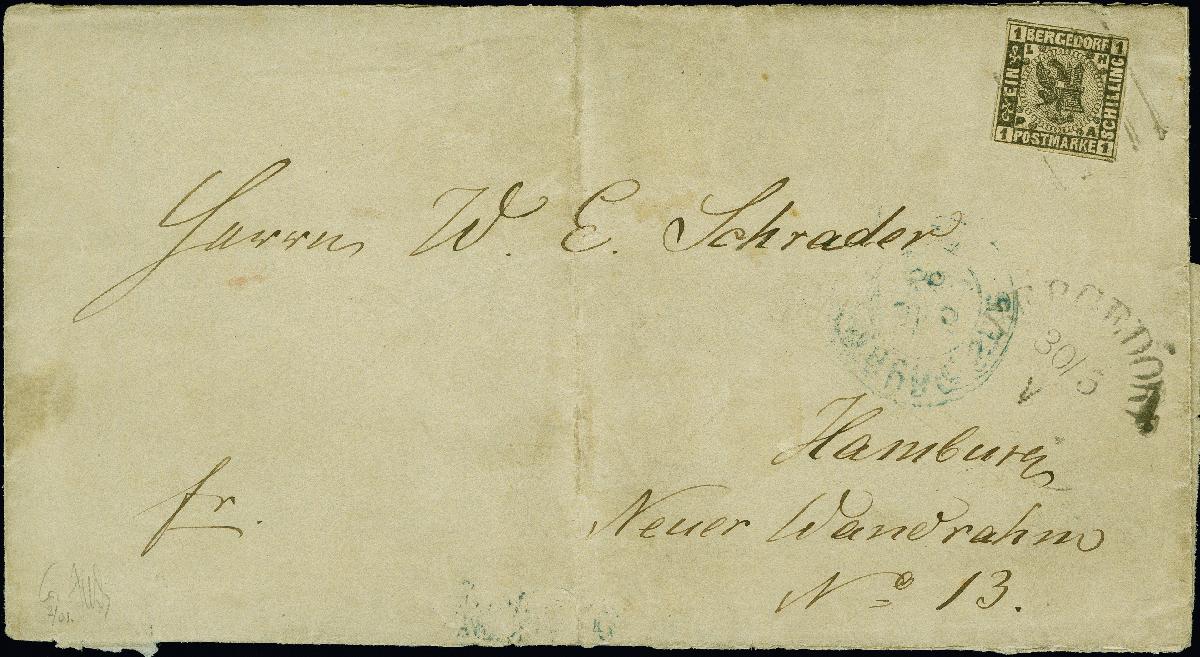 1 BERGEDORF 1
L H
EIN
SCHILLING
P A
1 POSTMARKE 1
Herrn W. E. Schrader
BERGEDORF
30/5
Hamburg
fr.
Neuer Wandrahm
No 13.